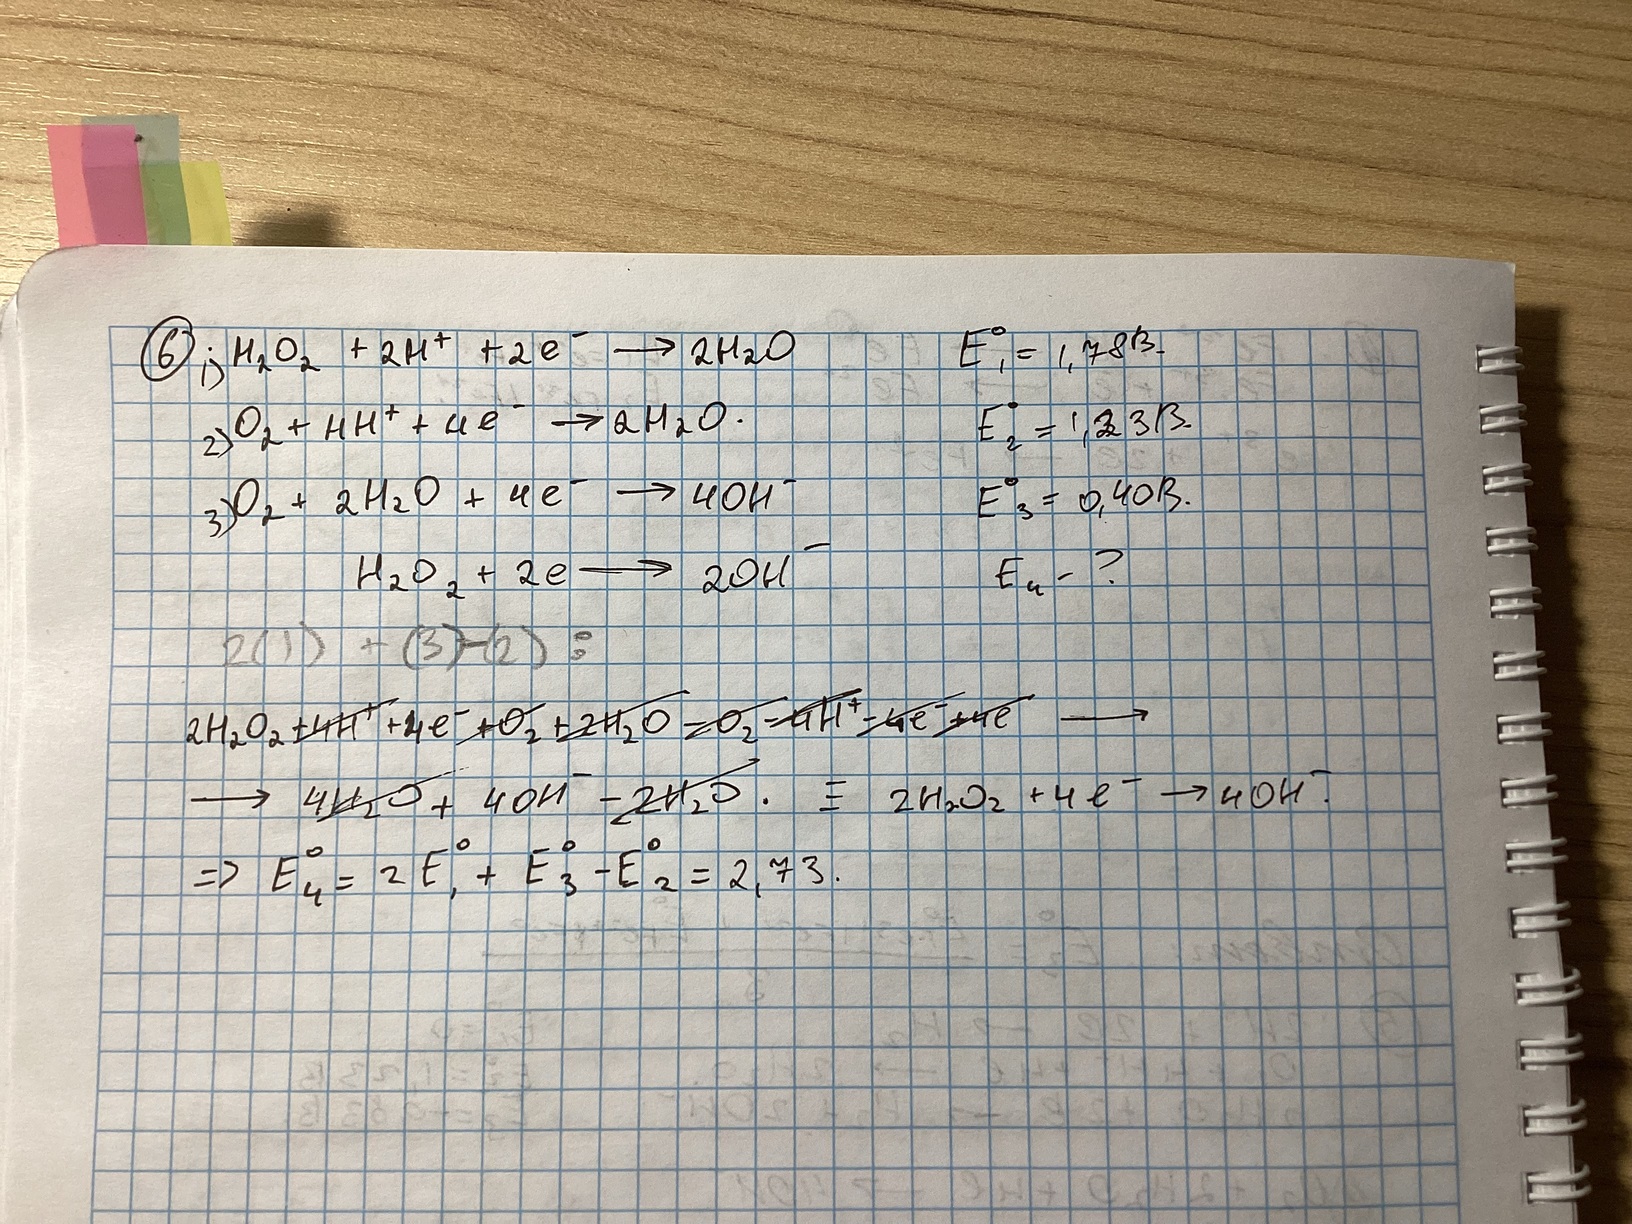 ⑥ 1) H₂O₂ + 2H⁺ + 2e⁻ → 2H₂O E°₁ = 1,78В.
2) O₂ + 4H⁺ + 4e⁻ → 2H₂O. E°₂ = 1,23В.
3) O₂ + 2H₂O + 4e⁻ → 4OH⁻ E°₃ = 0,40В.
H₂O₂ + 2e → 2OH⁻ E₄ - ?
2(1) + (3)-(2) :
2H₂O₂ +4H⁺ +4e⁻ +O₂ +2H₂O -O₂ -4H⁺ -4e⁻ +4e →
→ 4H₂O + 4OH⁻ - 2H₂O. ≡ 2H₂O₂ + 4e⁻ → 4OH⁻.
=> E°₄ = 2E°₁ + E°₃ - E°₂ = 2,73.